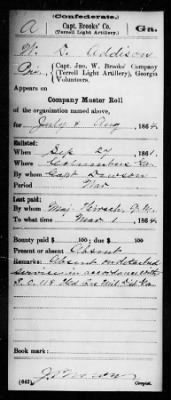 (Confederate.)
A Capt. Brooks' Co. Ga.
(Terrell Light Artillery).
W. D. Addison
Pvt., Capt. Jno. W. Brooks' Company
(Terrell Light Artillery), Georgia
Volunteers.
Appears on
Company Muster Roll
of the organization named above,
for July & Aug, 1864.
Enlisted:
When Sep 27, 1861.
Where Columbus Ga.
By whom Capt Dawson
Period War
Last paid:
By whom Maj.
To what time Mar 1, 1864.
Bounty paid $100; due $100
Present or absent Absent
Remarks: Absent on detached
service in accordance with
S.O. 118
Book mark:
(642) Copyist.